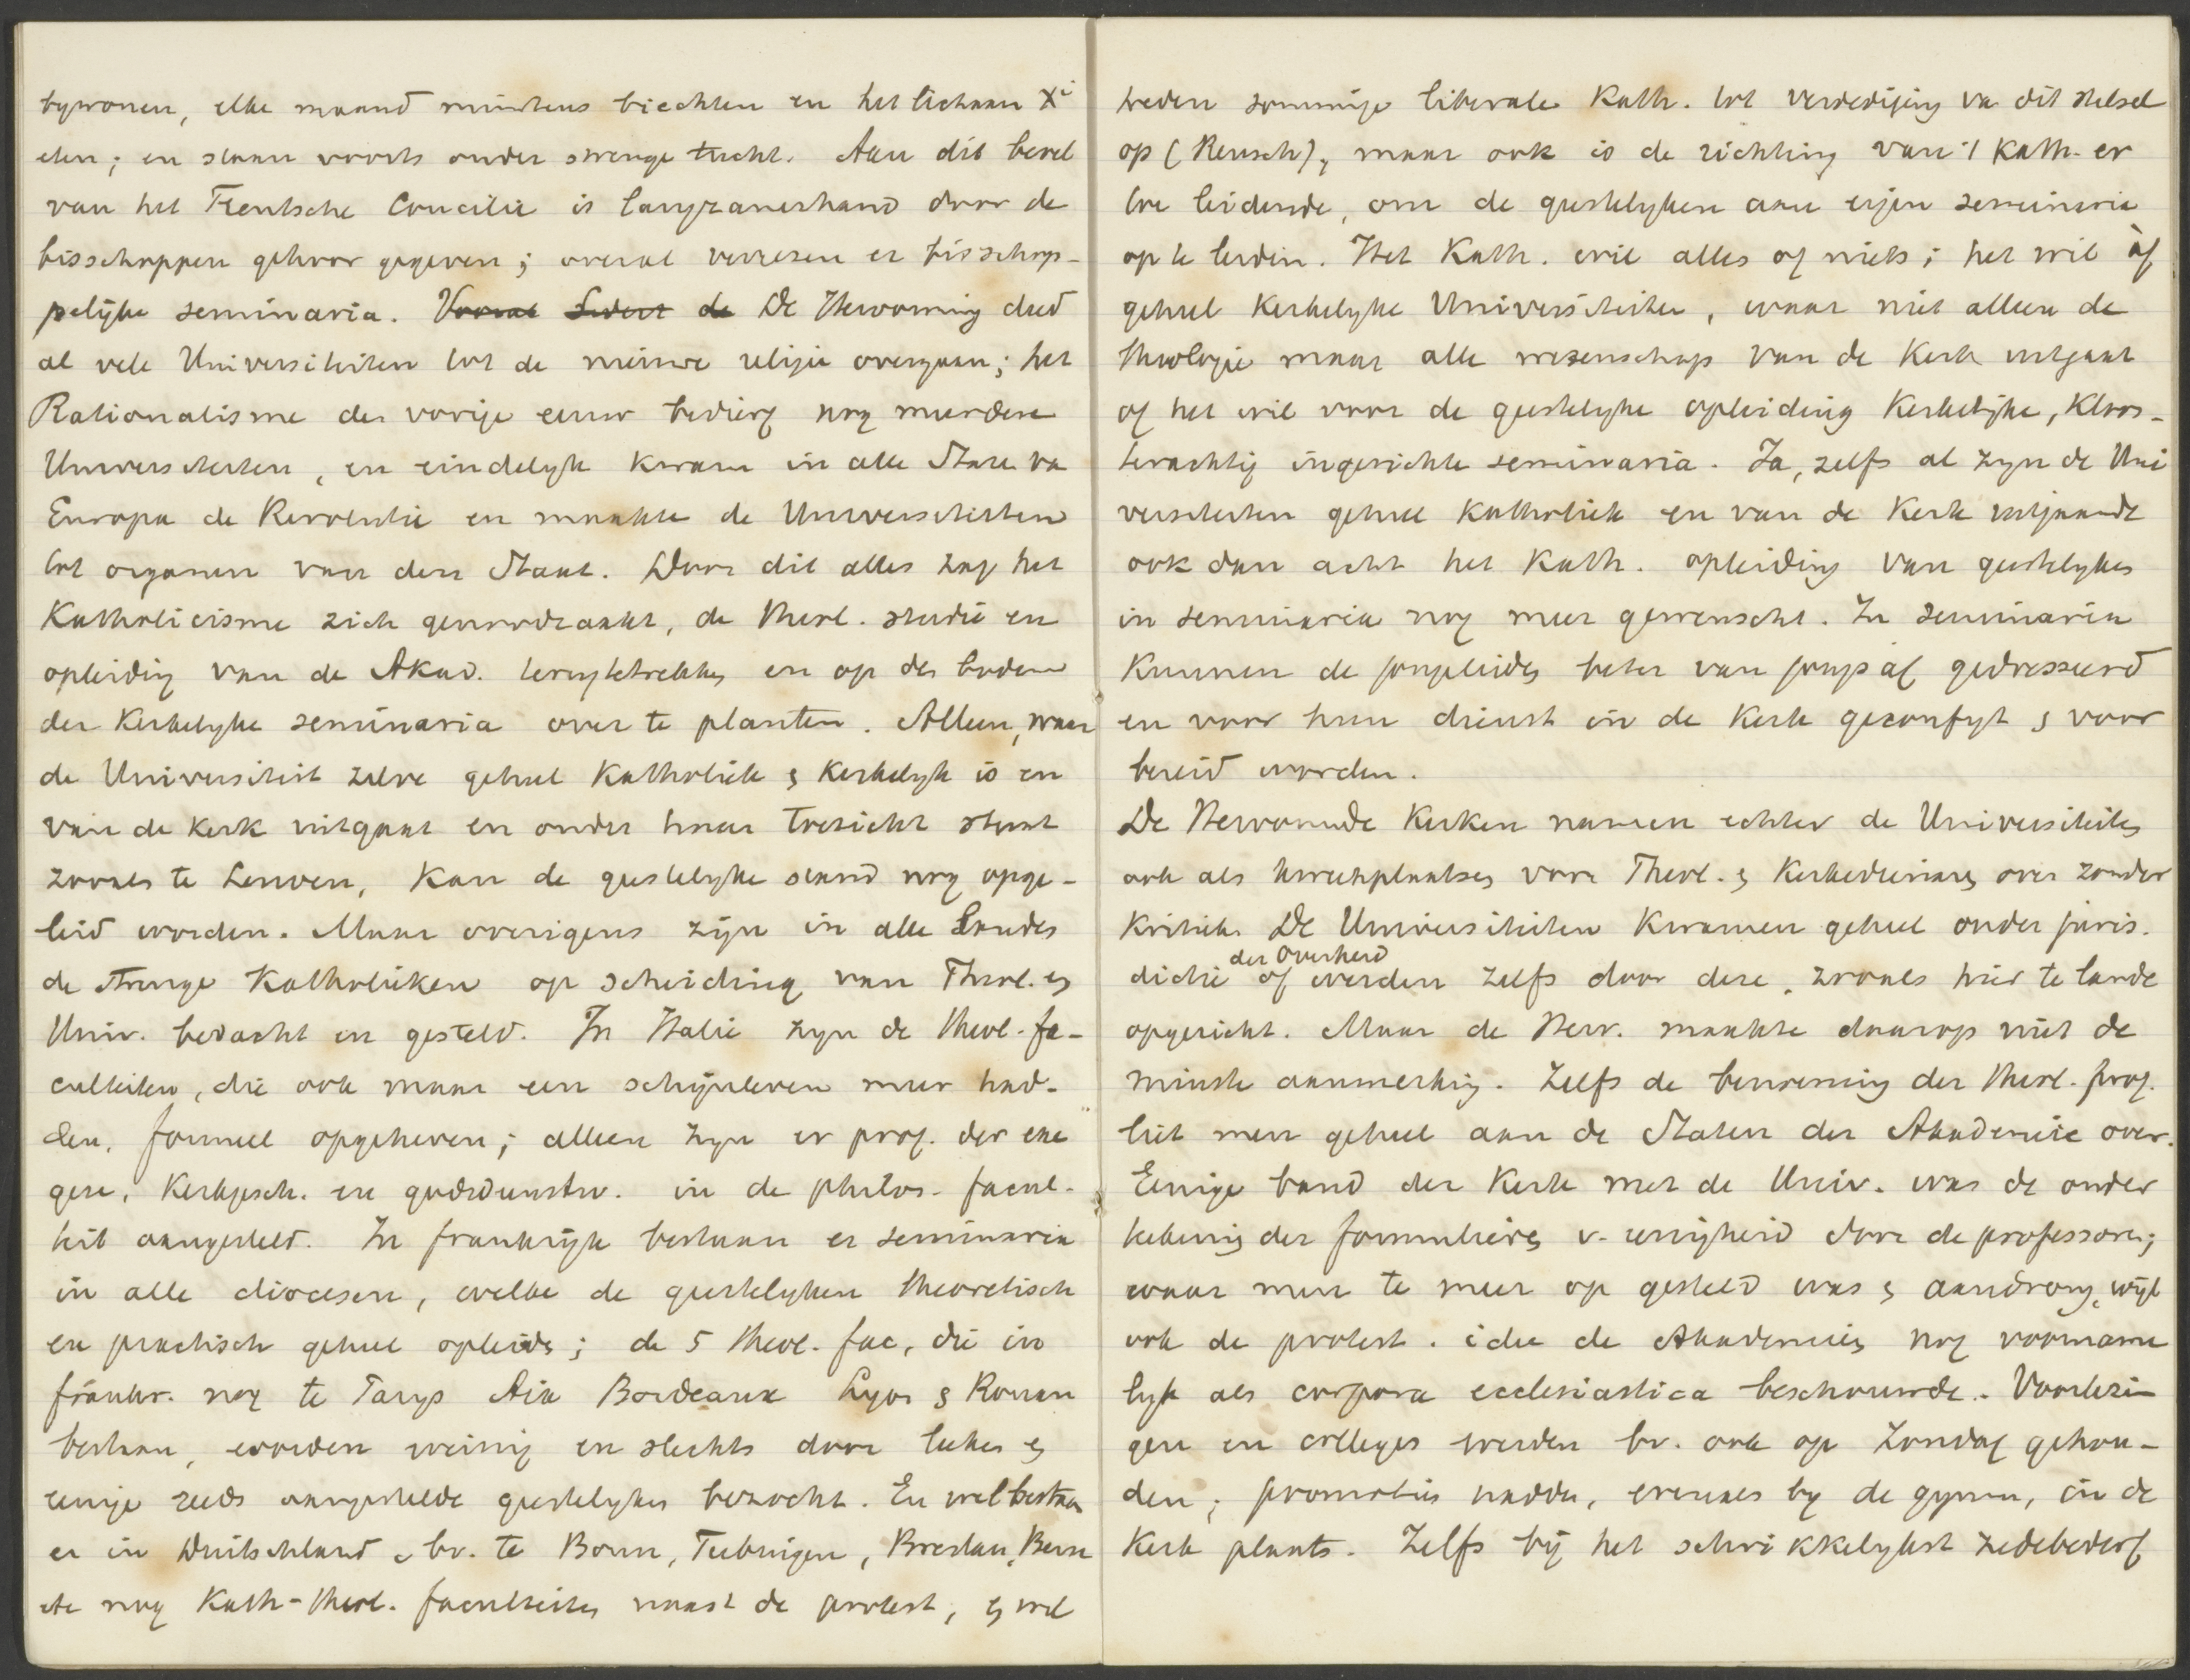 bywonen, elke maand minstens biechten en het lichaam Xi
eten; en staan voorts onder strenge tucht. Aan dit bevel
van het Trentsche Concilie is langzamerhand door de
bisschoppen gehoor gegeven; overal verrezen er bisschop-
pelijke seminaria. Vooral de De Hervorming deed
al vele Universiteiten tot de nieuwe religie overgaan; het
Rationalisme der vorige eeuw bedierf nog meerdere
Universiteiten, en eindelyk kwam in alle State va
Europa de Revolutie en maakte de Universiteiten
tot organen van den Staat. Door dit alles zag het
Katholicisme zich genoodzaakt, de theol. studie en
opleiding van de Akad. terugtetrekken en op den bodem
der Kerkelyke seminaria over te planten. Alleen, waar
de Universiteit zelve geheel Katholiek & Kerkelyk is en
van de Kerk uitgaat en onder haar toezicht staat
zooals te Leuven, kan de geestelyke stand nog opge-
leid worden. Maar overigens zijn in alle Landen
de strenge Katholieken op scheiding van Theol. en
Univ. bedacht en gesteld. In Italie zyn de theol. fa-
culteiten, die ook maar een schijnleven meer had-
den, formeel opgeheven; alleen zyn er prof. der exe
gese, Kerkgesch. en godsdienstw. in de philos. facul-
teit aangesteld. In frankrijk bestaan er seminaria
in alle diocesen, welke de geestelyken theoretisch
en practisch geheel opleiden; de 5 theol. fac, die in
frankr. nog te Parys Aix Bordeaux Lyon & Rouaan
bestaan, worden weinig en slechts door leeken en
eenige reeds aangestelde geestelyken bezocht. En wel bestaan
er in Duitschland, bv. te Bonn, Tubingen, Breslau, Bern
etc nog Kath-theol. faculteiten naast de protest, en wel
treden sommige liberale Kath. tot verdediging va dit stelsel
op (Reusch), maar ook is de richting van 't Kath. er
toe leidende, om de geestelyken aan eigen seminarie
op te leiden. Het Kath. wil alles of niets; het wil òf
geheel Kerkelyke Universiteiten, waar niet alleen de
theologie maar alle wetenschap van de Kerk uitgaat
of het wil voor de geestelyke opleiding Kerkelijke, Kloos-
terachtig ingerichte seminaria. Ja, zelfs al zyn de Uni
versiteiten geheel Katholiek en van de Kerk uitgaande
ook dan acht het Kath. opleiding van geestelyken
in seminaria nog meer gewenscht. In seminaria
kunnen de jongelieden beter van jongs af gedresseerd
en voor hun dienst in de Kerk gekonfyt & voor
bereid worden.
De Hervormde Kerken namen echter de Universiteiten
ook als kweekplaatsen voor Theol. & Kerkedienaren over zonder
Kritiek. De Universiteiten kwamen geheel onder juris-
dictie der Overheid of werden zelfs door deze, zooals hier te lande
opgericht. Maar de Herv. maakte daarop niet de
minste aanmerking. Zelfs de benoeming der theol. prof.
liet men geheel aan de Staten der Akademie over.
Eenige band der Kerk met de Univ. was de onder
tekening der formulieren v. eenigheid door de professoren;
waar men te meer op gesteld was & aandrong, wijl
ook de protest. idee de Akademien nog voorname
lyk als corpora ecclesiastica beschouwde. Voorlezin
gen en colleges werden bv. ook op Zondag gehou-
den; promotien hadden, evenals by de gymn, in de
Kerk plaats. Zelfs bij het schrikkelykst zedebederf